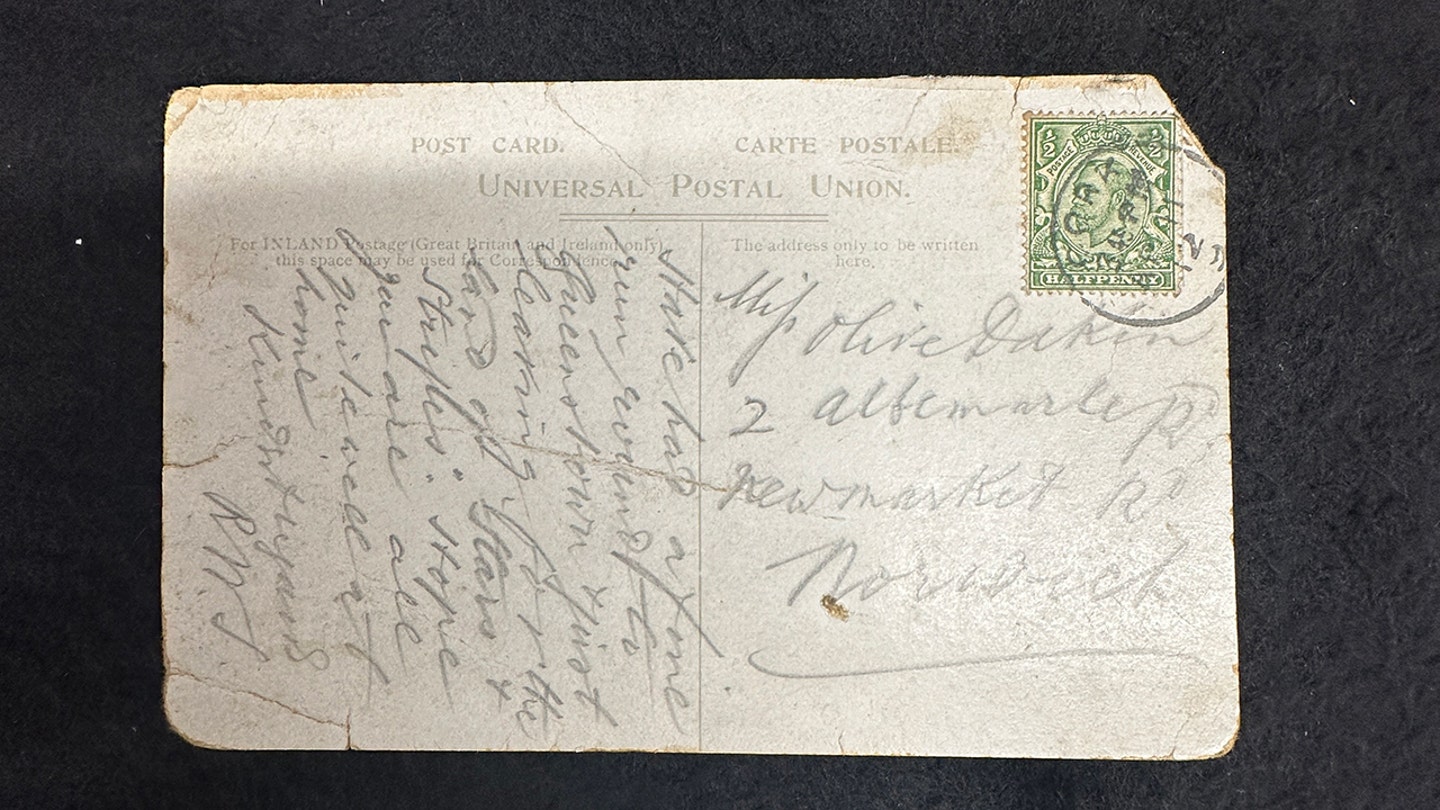 POST CARD. CARTE POSTALE.
UNIVERSAL POSTAL UNION.
For INLAND Postage (Great Britain and Ireland only)
this space may be used for Correspondence.
The address only to be written
here.
½ ½
POSTAGE REVENUE
HALFPENNY
Have had a fine
run round to
Queenstown & just
leaving for the
land of "Stars &
Stripes." Hope
you are all
quite well at
home
Kind regards
R M
Miss Olive Dakin
2 Albemarle Rd
Newmarket Rd
Norwich